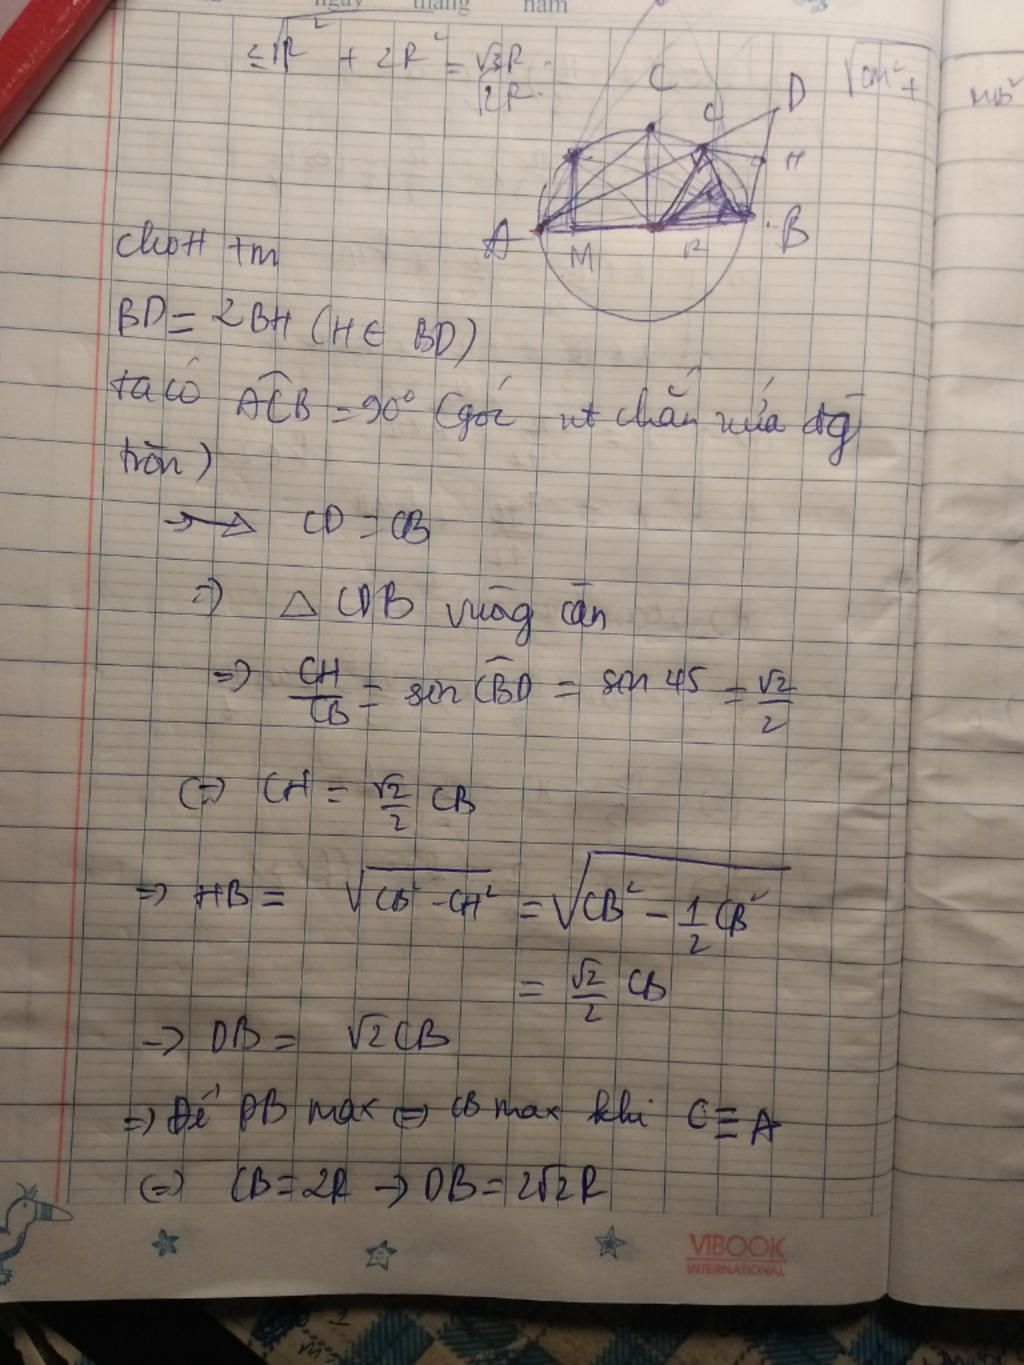 ngày tháng năm
= √R² + 2R² = √3R.
√2R.
√CM² +
MB²
C
C
D
H
A
M
R
B
cho H tm
BD = 2BH (H ∈ BD)
ta có ACB = 90° (góc nt chắn nửa đg
tròn)
→ △ CD = CB
=> △ CDB vuông cân
=> CH/CB = sin CBD = sin 45 = √2/2
<=> CH = √2/2 CB
=> HB = √CB² - CH² = √CB² - 1/2 CB²
= √2/2 CB
-> DB = √2 CB
=> Để DB max <=> CB max khi C ≡ A
<=> CB = 2R -> DB = 2√2R
VIBOOK
INTERNATIONAL